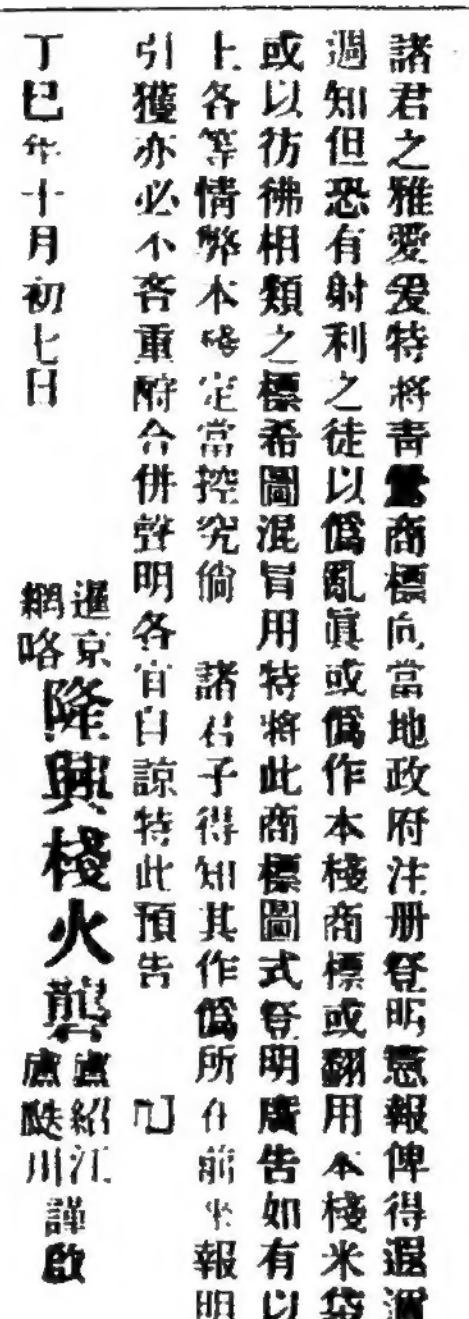 諸君之雅愛爰特將青鷥商標向當地政府注册登昭憲報俾得遐邇
週知但恐有射利之徒以僞亂真或僞作本棧商標或翻用本棧米袋
或以彷彿相類之標希圖混冒用特將此商標圖式登明廣告如有以
上各等情弊本棧定當控究倘 諸君子得知其作僞所在前來報明
引獲亦必不吝重酧合併聲明各宜自諒特此預告
丁巳年十月初七日
暹京
網咯
隆興棧火礱
盧紹江
盧㽃川
謹啟